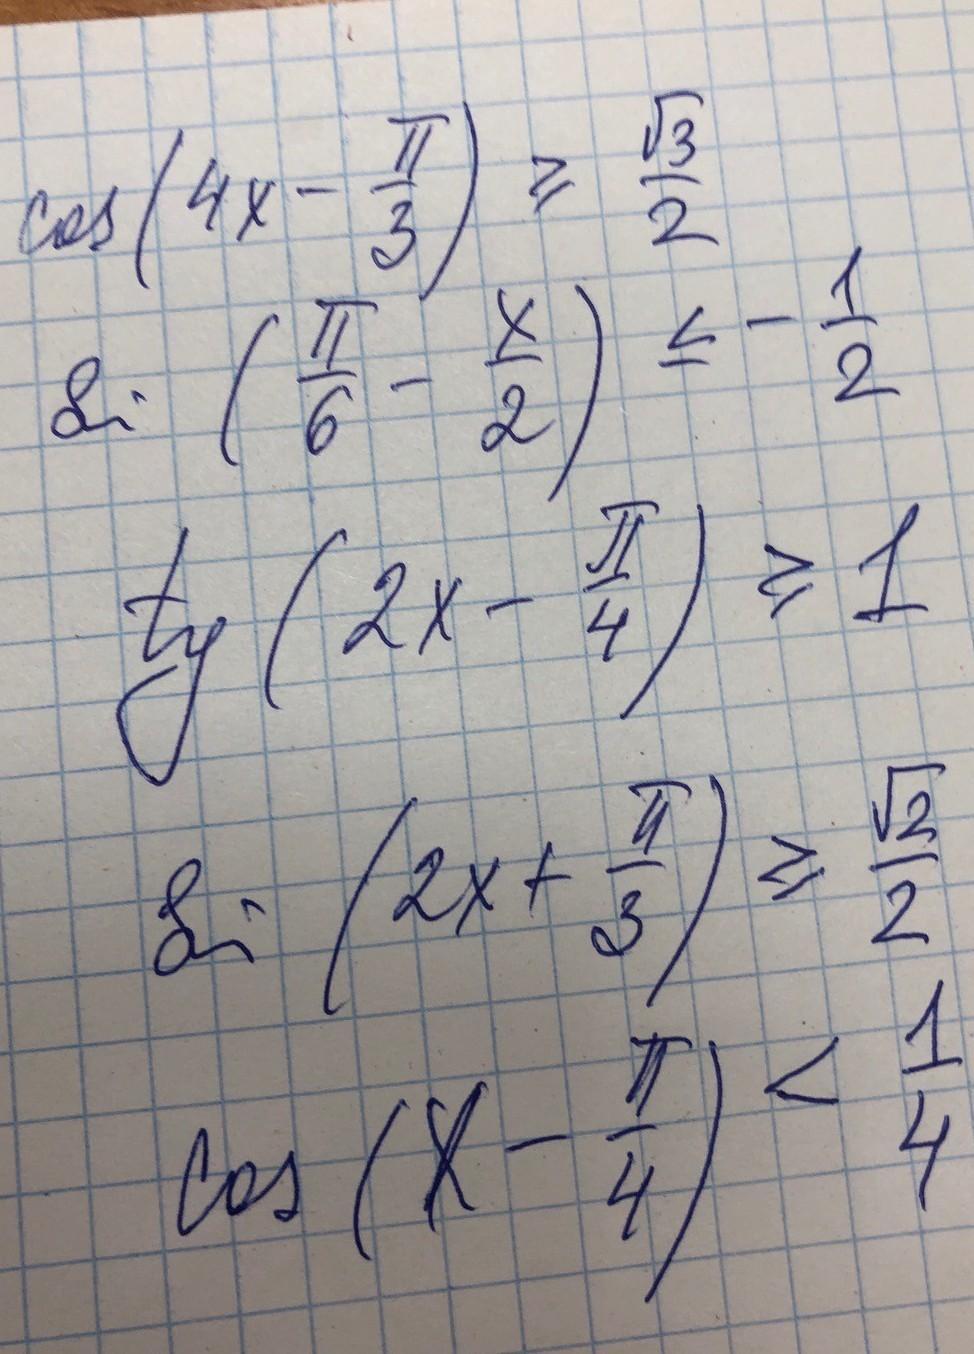 cos(4x - π/3) ≥ √3/2
Sin (π/6 - x/2) ≤ - 1/2
tg (2x - π/4) ≥ 1
Sin (2x + π/3) ≥ √2/2
cos (x - π/4) < 1/4